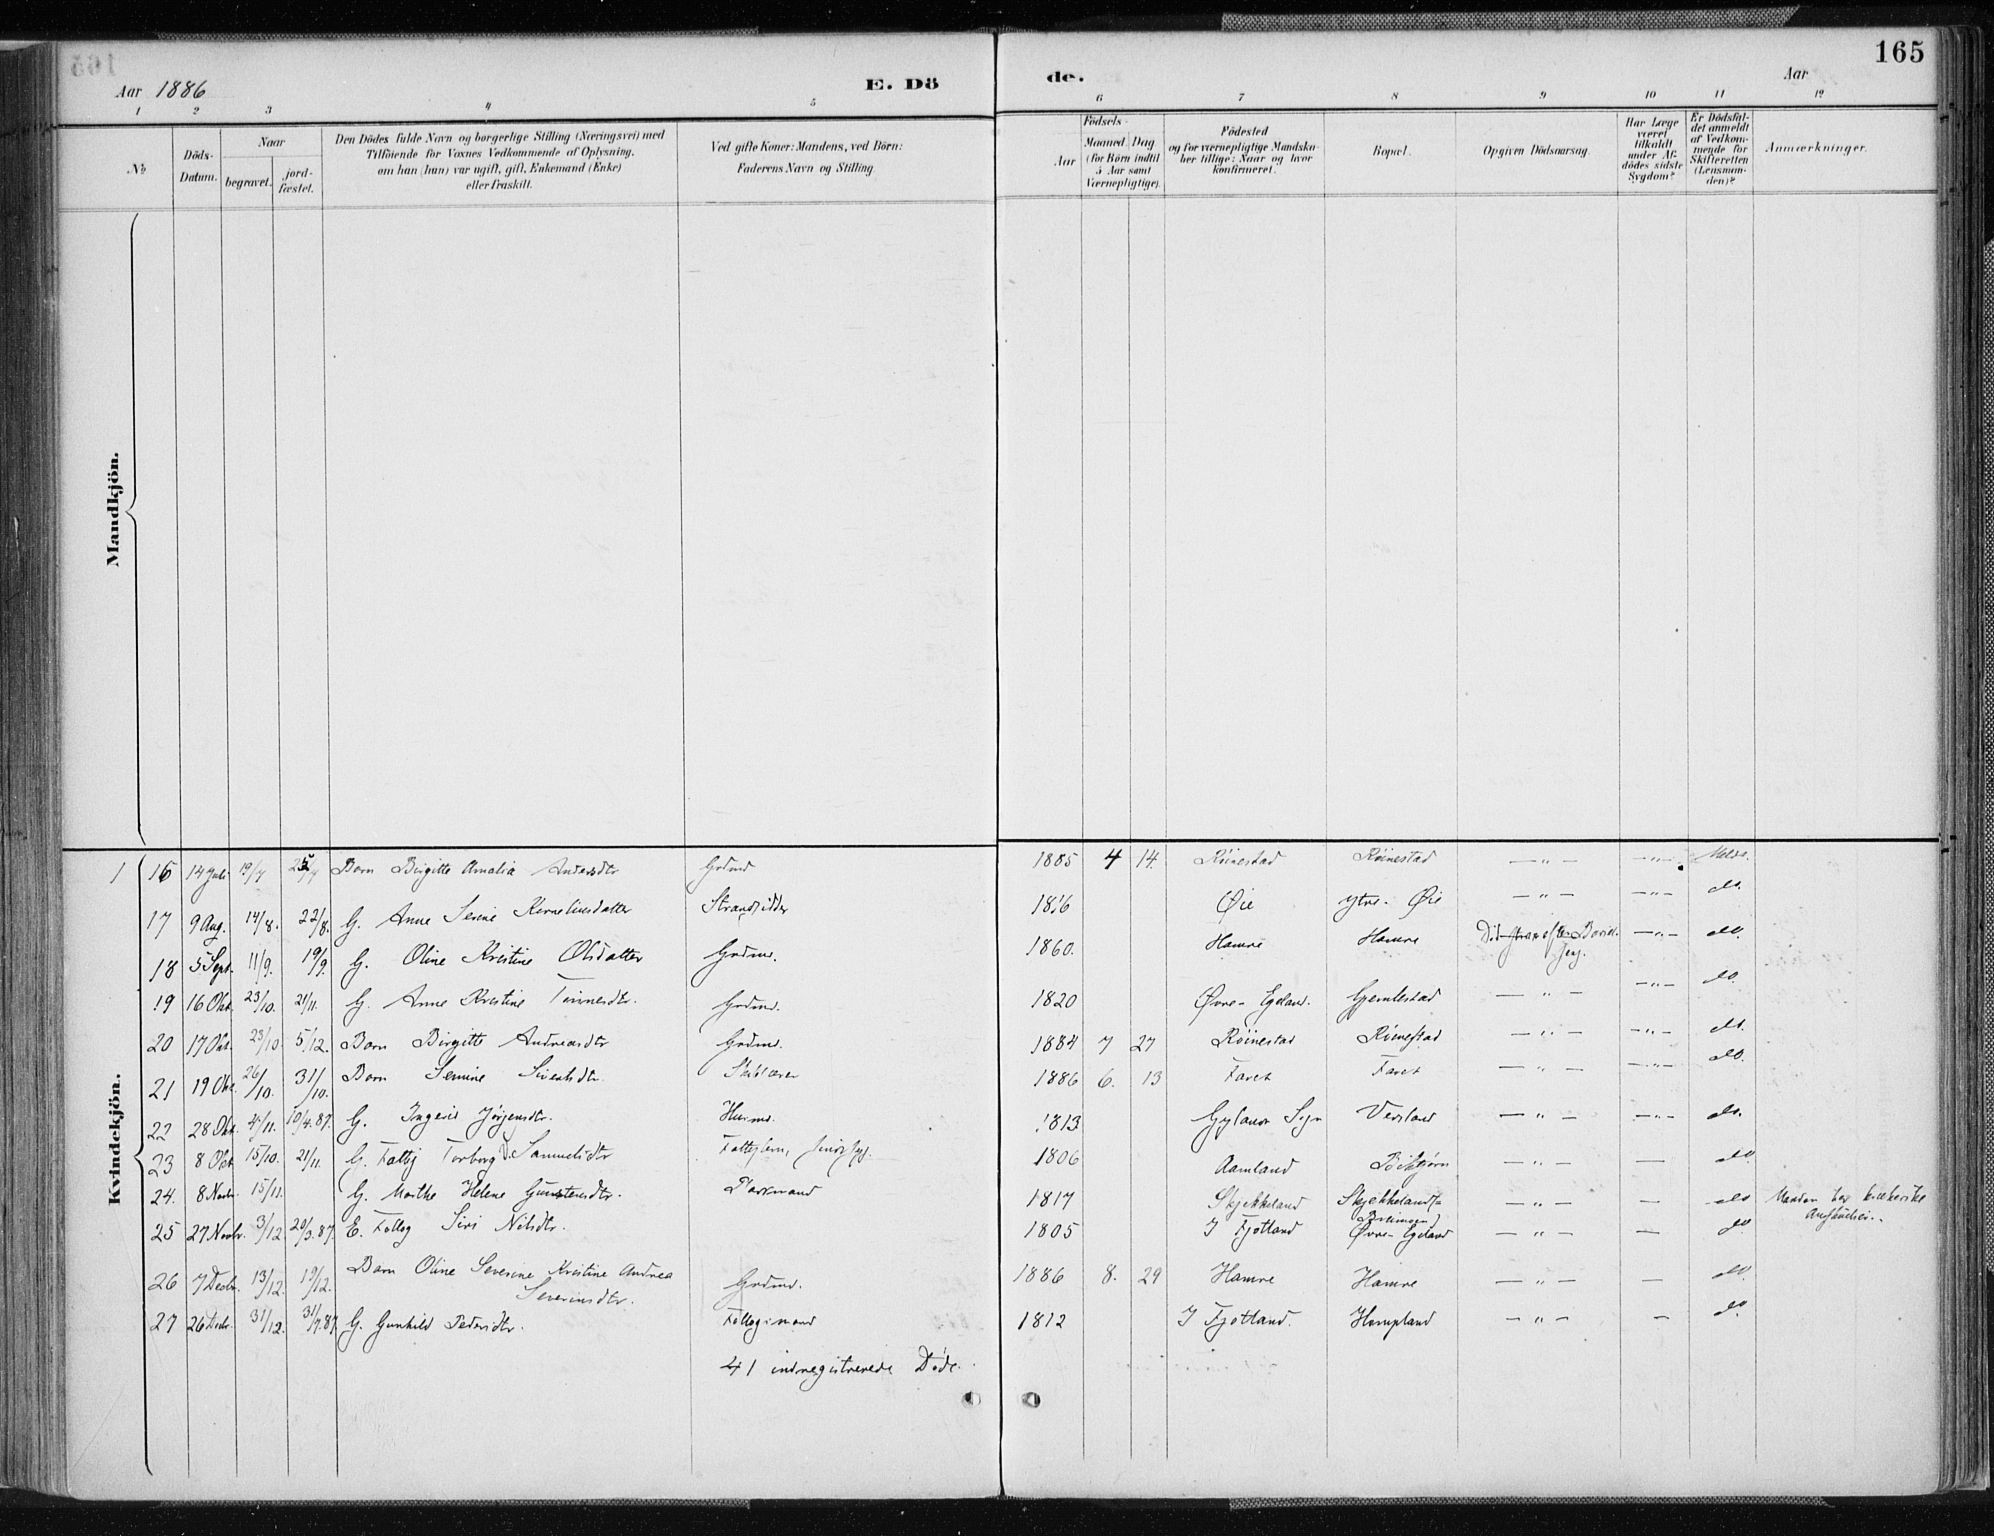 165
Aar 1886
E. Dö
de.
Aar
1 2 3 4 5 6 7 8 9 10 11 12
№
Döds-
Datum.
Naar
begravet.
jord-
fæstet.
Den Dödes fulde Navn og borgerlige Stilling (Næringsvei) med
Tilföiende for Voxnes Vedkommende af Oplysning,
om han (hun) var ugift, gift, Enkemand (Enke)
eller fraskilt.
Ved gifte Koner: Mandens, ved Börn:
Faderens Navn og Stilling
Födsels-
Aar
Maaned
Dag
(for Börn indtil
5 Aar samt
Værnepligtige).
Födested
og for værnepligtige Mandska-
ber tillige: Naar og hvor
konfirmeret.
Bopæl.
Opgiven Dödsaarsag.
Har Læge
været
tilkaldt
under Af-
dödes sidste
Sygdom?
Er Dödsfal-
det anmeldt
af Vedkom-
mende for
Skifteretten
(Lensman-
den)?
Anmærkninger.
Mandkjön.
Kvindekjön.
1 16 14 Juli 19/7 Barn Birgitte Amalia Andersdtr Grdmd 1885 4 14. Röinestad Röinestad — „ — — „ — Meldt.
17 9 Aug. 14/8. 22/8. G. Anne Serine Korneliusdatter Strandsidder 1816 Øie Ytre- Øie — „ — — „ — do.
18 5 Sept. 11/9. 19/9. G. Oline Kristine Olsdatter Grdmd. 1860. Hamre Hamre — „ — do.
19 16 Okt. 23/10. 21/11. G. Anne Kristine Tønnesdtr. Grdmd. 1820 Øvre- Egeland. Gjemlestad — „ — — „ — do.
20 17 Okt. 23/10. 5/12. Barn Birgitte Andreasdtr Grdmd. 1884 7 27 Röinestad Röinestad — „ — — „ — do.
21 19 Okt. 26/10. 31/10. Barn Semine Sivertsdtr. Skolelærer 1886 6. 13 Faret Faret — „ — — „ — do.
22 28 Okt. 4/11. 10/4.87. G. Ingerid Jørgensdtr. Husmd. 1813 Gyland Sogn Versland — „ — — „ — do.
23 8 Okt 15/10. 21/11. G. Fattig Torborg Samuelsdtr Fattiglem, 1806 Aamland — „ — — do.
24. 8 Novbr. 15/11. G. Marthe Helene Gunstensdtr. Plasmand 1817 Skjekkeland Skjekkeland — „ — — do Manden har
25 27 Novbr. 3/12. 20/3.87. E. Fattig Siri Nilsdtr. 1805 I Fjotland Øvre- Egeland — „ — — do.
26 7 Decbr. 13/12. 19/12. Barn Oline Severine Kristine Andrea
Severinsdtr. Grdmd. 1886 8. 29 Hamre Hamre — „ — — do.
27 26 Decbr. 31/12. 31/7.87. G. Gunhild Pedersdtr. Fattigmand 1812 I Fjotland. Hompland — „ — — do.
41 indregistrerede Døde.